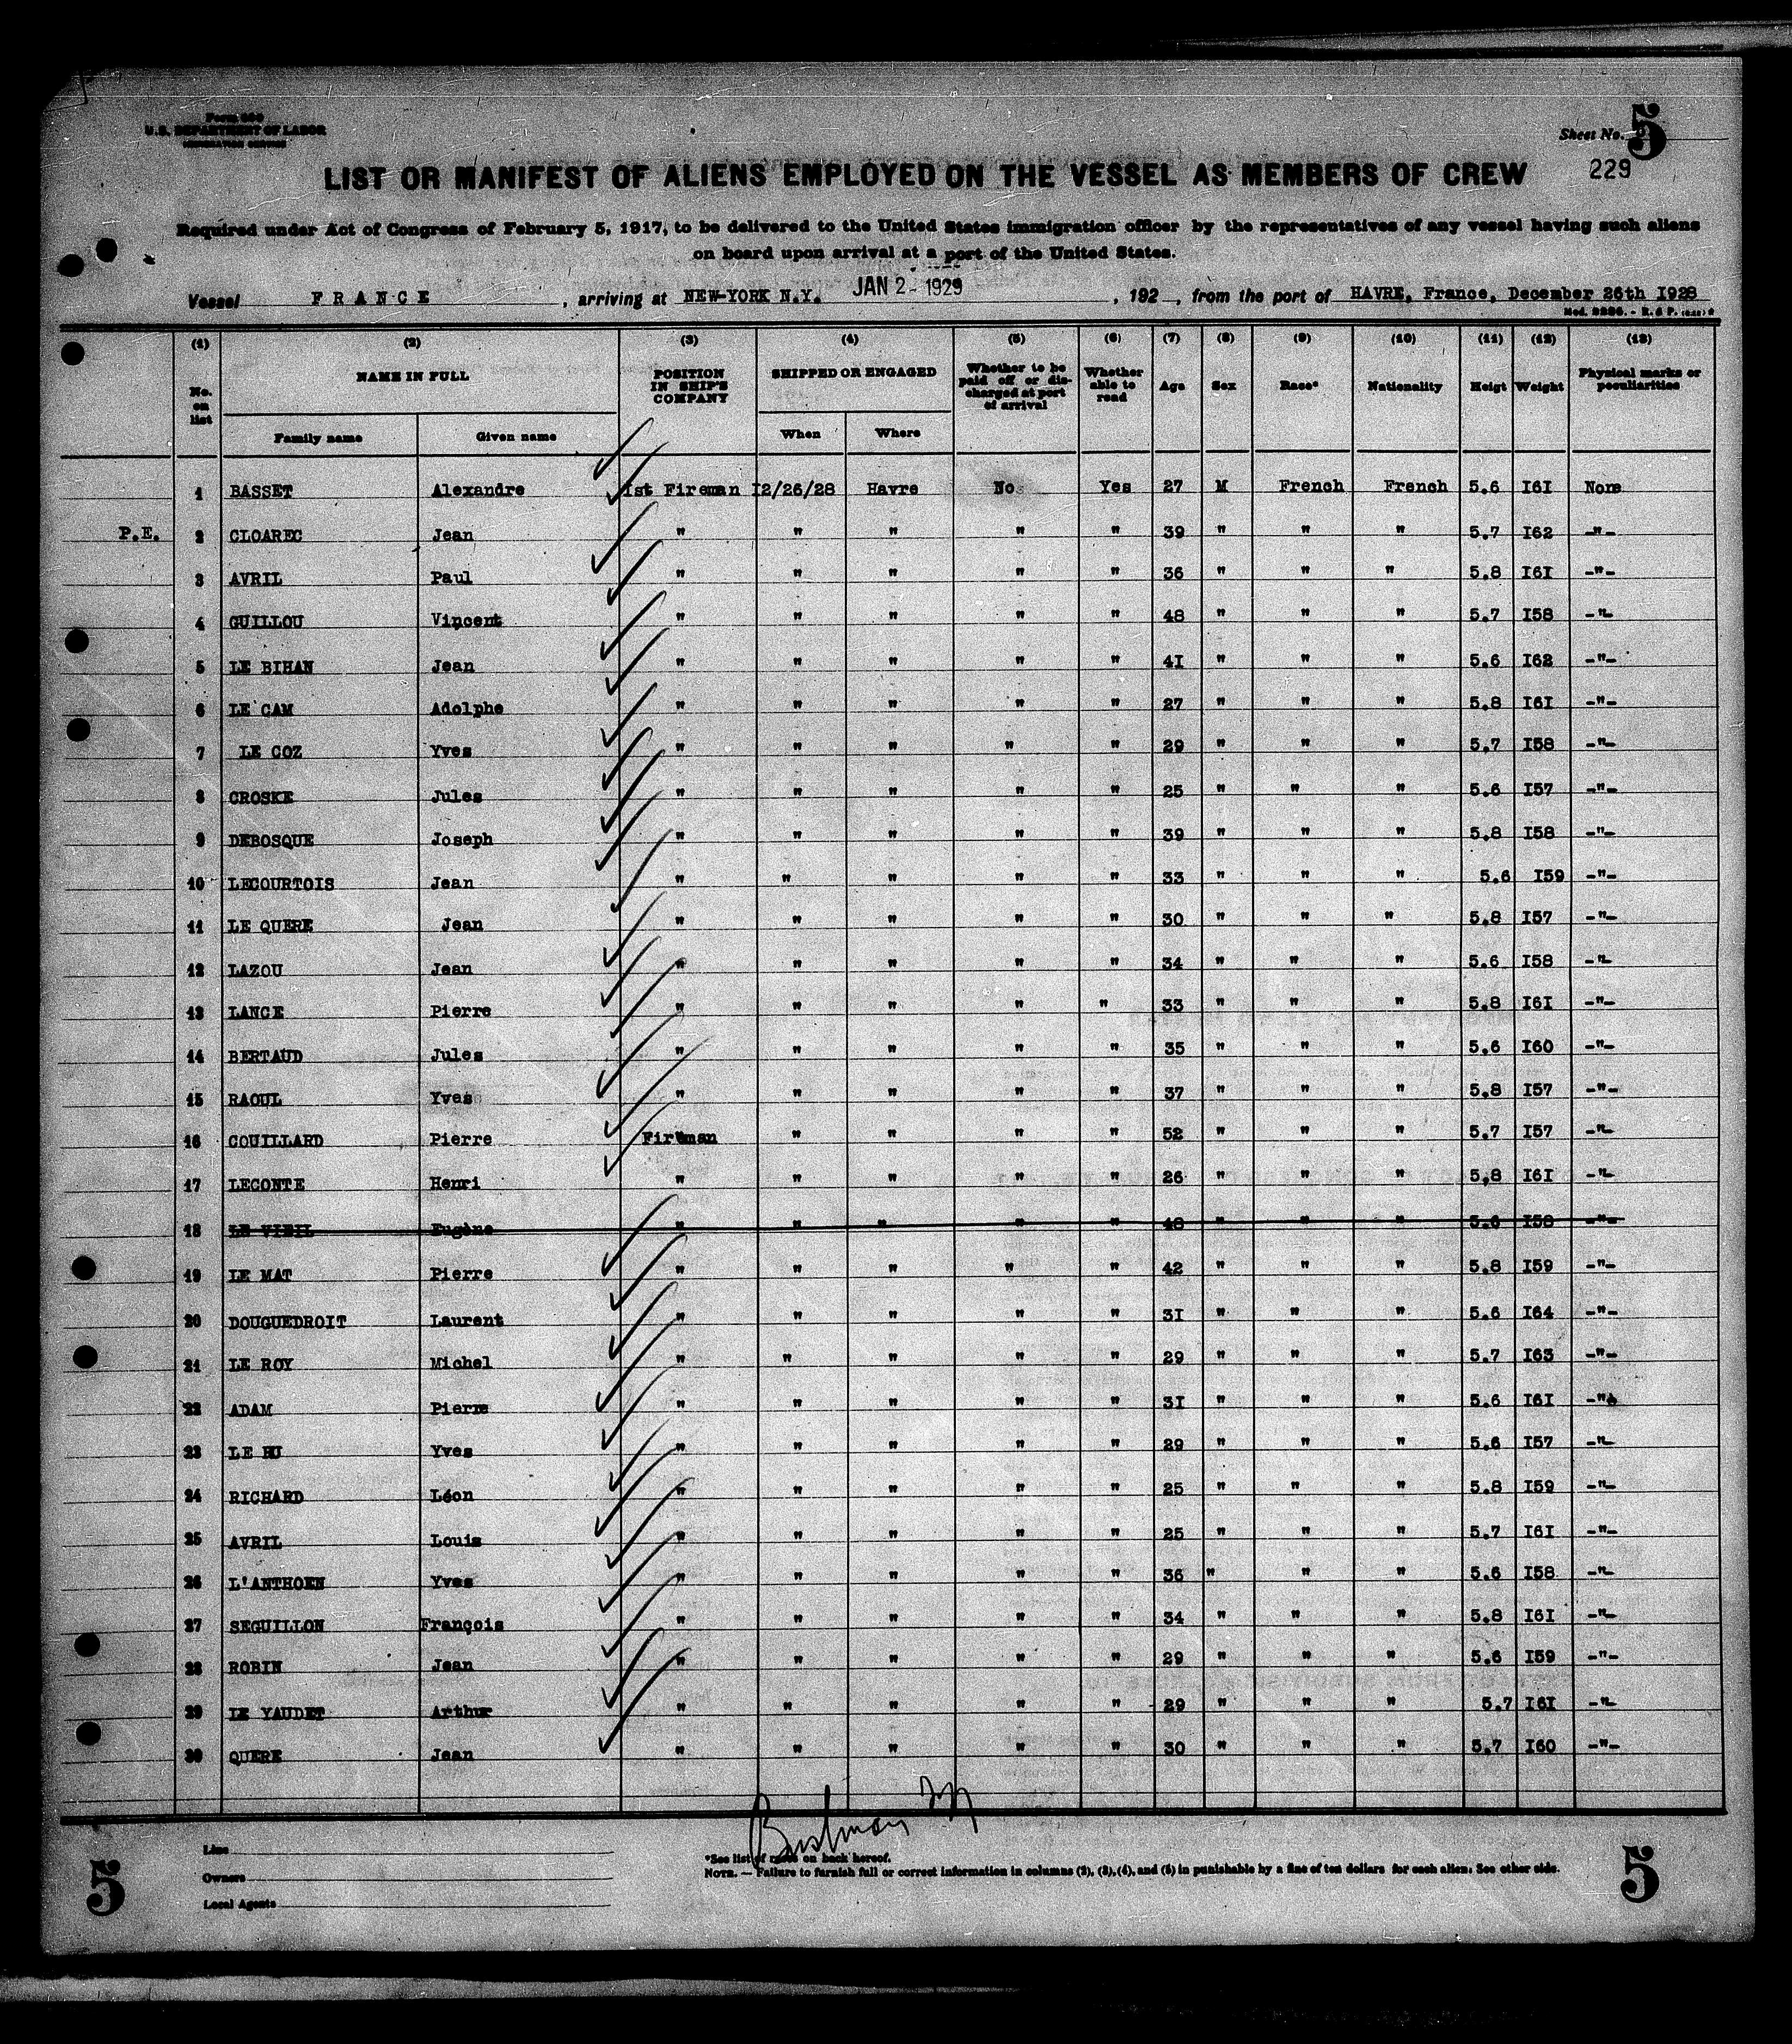 Form 680
U.S. DEPARTMENT OF LABOR
IMMIGRATION SERVICE
Sheet No. 5
229
LIST OR MANIFEST OF ALIENS EMPLOYED ON THE VESSEL AS MEMBERS OF CREW
Required under Act of Congress of February 5, 1917, to be delivered to the United States immigration officer by the representatives of any vessel having such aliens
on board upon arrival at a port of the United States.
Vessel FRANCE, arriving at NEW-YORK N.Y. JAN 2 - 1929, 192 , from the port of HAVRE, France, December 26th I928
(1) (2) (3) (4) (5) (6) (7) (8) (9) (10) (11) (12) (13)
No. on list NAME IN FULL POSITION IN SHIP'S COMPANY SHIPPED OR ENGAGED Whether to be paid off or discharged at port of arrival Whether able to read Age Sex Race* Nationality Heigt Weight Physical marks or peculiarities
Family name Given name When Where
1 BASSET Alexandre Ist Fireman I2/26/28 Havre No Yes 27 M French French 5.6 I6I None
P.E. 2 CLOAREC Jean " " " " " 39 " " " 5.7 I62 -"-
3 AVRIL Paul " " " " " 36 " " " 5.8 I6I -"-
4 GUILLOU Vincent " " " " " 48 " " " 5.7 I58 -"-
5 LE BIHAN Jean " " " " " 4I " " " 5.6 I62 -"-
6 LE CAM Adolphe " " " " " 27 " " " 5.8 I6I -"-
7 LE COZ Yves " " " " " 29 " " " 5.7 I58 -"-
8 CROSKE Jules " " " " " 25 " " " 5.6 I57 -"-
9 DEBOSQUE Joseph " " " " " 39 " " " 5.8 I58 -"-
10 LECOURTOIS Jean " " " " " 33 " " " 5.6 I59 -"-
11 LE QUERE Jean " " " " " 30 " " " 5.8 I57 -"-
12 LAZOU Jean " " " " " 34 " " " 5.6 I58 -"-
13 LANCE Pierre " " " " " 33 " " " 5.8 I6I -"-
14 BERTAUD Jules " " " " " 35 " " " 5.6 I60 -"-
15 RAOUL Yves " " " " " 37 " " " 5.8 I57 -"-
16 COUILLARD Pierre Fireman " " " " 52 " " " 5.7 I57 -"-
17 LECONTE Henri " " " " " 26 " " " 5,8 I6I -"-
18 LE VIEIL Eugène " " " " " 48 " " " 5.6 I58 -"-
19 LE MAT Pierre " " " " " 42 " " " 5.8 I59 -"-
20 DOUGUEDROIT Laurent " " " " " 3I " " " 5.6 I64 -"-
21 LE ROY Michel " " " " " 29 " " " 5.7 I63 -"-
22 ADAM Pierre " " " " " 3I " " " 5.6 I6I -"-
23 LE HU Yves " " " " " 29 " " " 5.6 I57 -"-
24 RICHARD Léon " " " " " 25 " " " 5.8 I59 -"-
25 AVRIL Louis " " " " " 25 " " " 5.7 I6I -"-
26 L'ANTHOEN Yves " " " " " 36 " " " 5.6 I58 -"-
27 SEGUILLON François " " " " " 34 " " " 5.8 I6I -"-
28 ROBIN Jean " " " " " 29 " " " 5.6 I59 -"-
29 LE YAUDET Arthur " " " " " 29 " " " 5.7 I6I -"-
30 QUERE Jean " " " " " 30 " " " 5.7 I60 -"-
Line
Owners
Local Agents
*See list of races on back hereof.
NOTE. — Failure to furnish full or correct information in columns (2), (3), (4), and (5) in punishable by a fine of ten dollars for each alien. See other side.
5
5